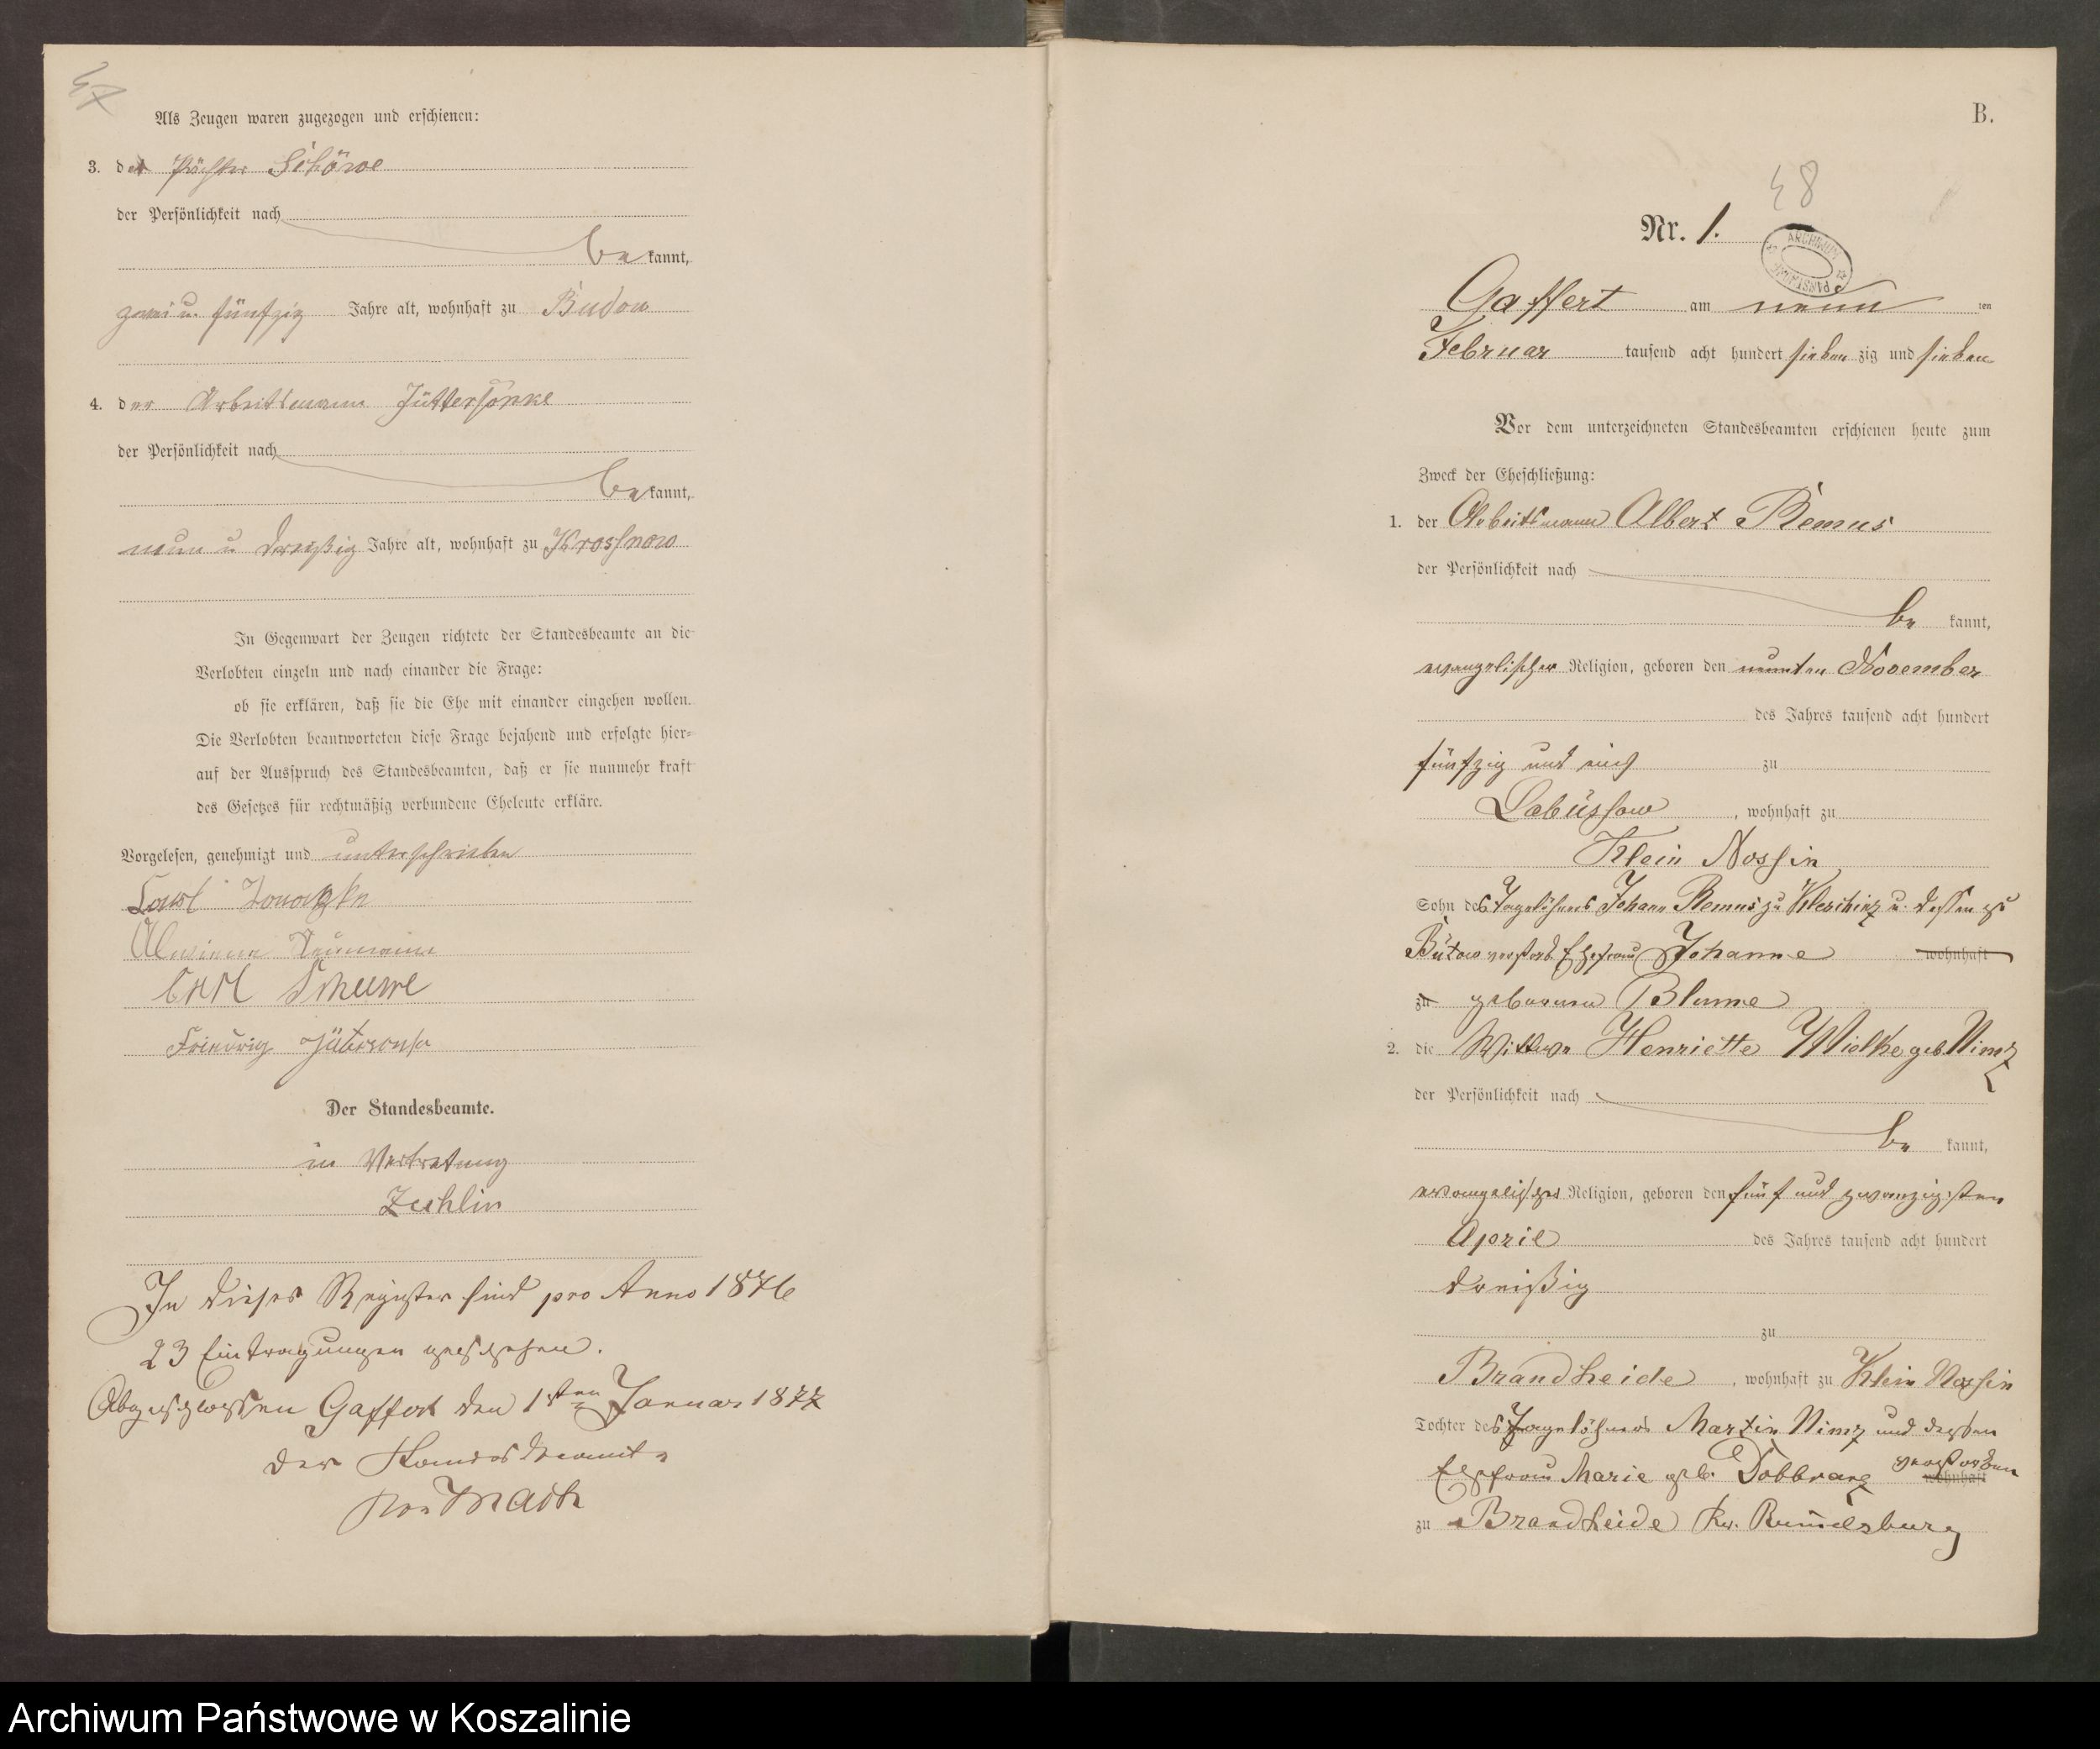 47
Als Zeugen waren zugezogen und erschienen:
3. der Pächter Schöwe
der Persönlichkeit nach
be kannt,
zwei u. fünfzig Jahre alt, wohnhaft zu Budow
4. der Arbeitsmann Jüttersönke
der Persönlichkeit nach
be kannt,
neun u dreißig Jahre alt, wohnhaft zu Krossnow
In Gegenwart der Zeugen richtete der Standesbeamte an die
Verlobten einzeln und nach einander die Frage:
ob sie erklären, daß sie die Ehe mit einander eingehen wollen.
Die Verlobten beantworteten diese Frage bejahend und erfolgte hier=
auf der Ausspruch des Standesbeamten, daß er sie nunmehr kraft
des Gesetzes für rechtmäßig verbundene Eheleute erkläre.
Vorgelesen, genehmigt und unterschrieben
Carl
Neumann
Carl
Friedrig
Der Standesbeamte.
in Vertretung
Zechlin
In dieses Register sind pro Anno 1876
23 Eintragungen geschehen.
Abgeschlossen Gaffert den 1sten Januar 1877
Der Standesbeamte
B.
48
Nr. 1.
ARCHIWUM
Gaffert am neun ten
Februar tausend acht hundert sieben zig und sieben
Vor dem unterzeichneten Standesbeamten erschienen heute zum
Zweck der Eheschließung:
1. der Arbeitsmann Albert Remus
der Persönlichkeit nach
be kannt,
evangelischer Religion, geboren den neunten November
des Jahres tausend acht hundert
fünfzig und eins zu
Labüssow, wohnhaft zu
Klein Nossin
Sohn des Tagelöhners Johann Remus zu Kleschinz u. dessen zu
Bütow verstorb. Ehefrau Johanne wohnhaft
zu geborenen Blume
2. die Wittwe Henriette Mielke geb. Nimz
der Persönlichkeit nach
be kannt,
evangelischer Religion, geboren den fünf und zwanzigsten
April des Jahres tausend acht hundert
dreißig
zu
Brandheide, wohnhaft zu Klein Nossin
Tochter des Tagelöhners Martin Nimz und dessen
Ehefrau Marie geb. Dobbranz verstorben wohnhaft
zu Brandheide Kr. Rummelsburg
Archiwum Państwowe w Koszalinie